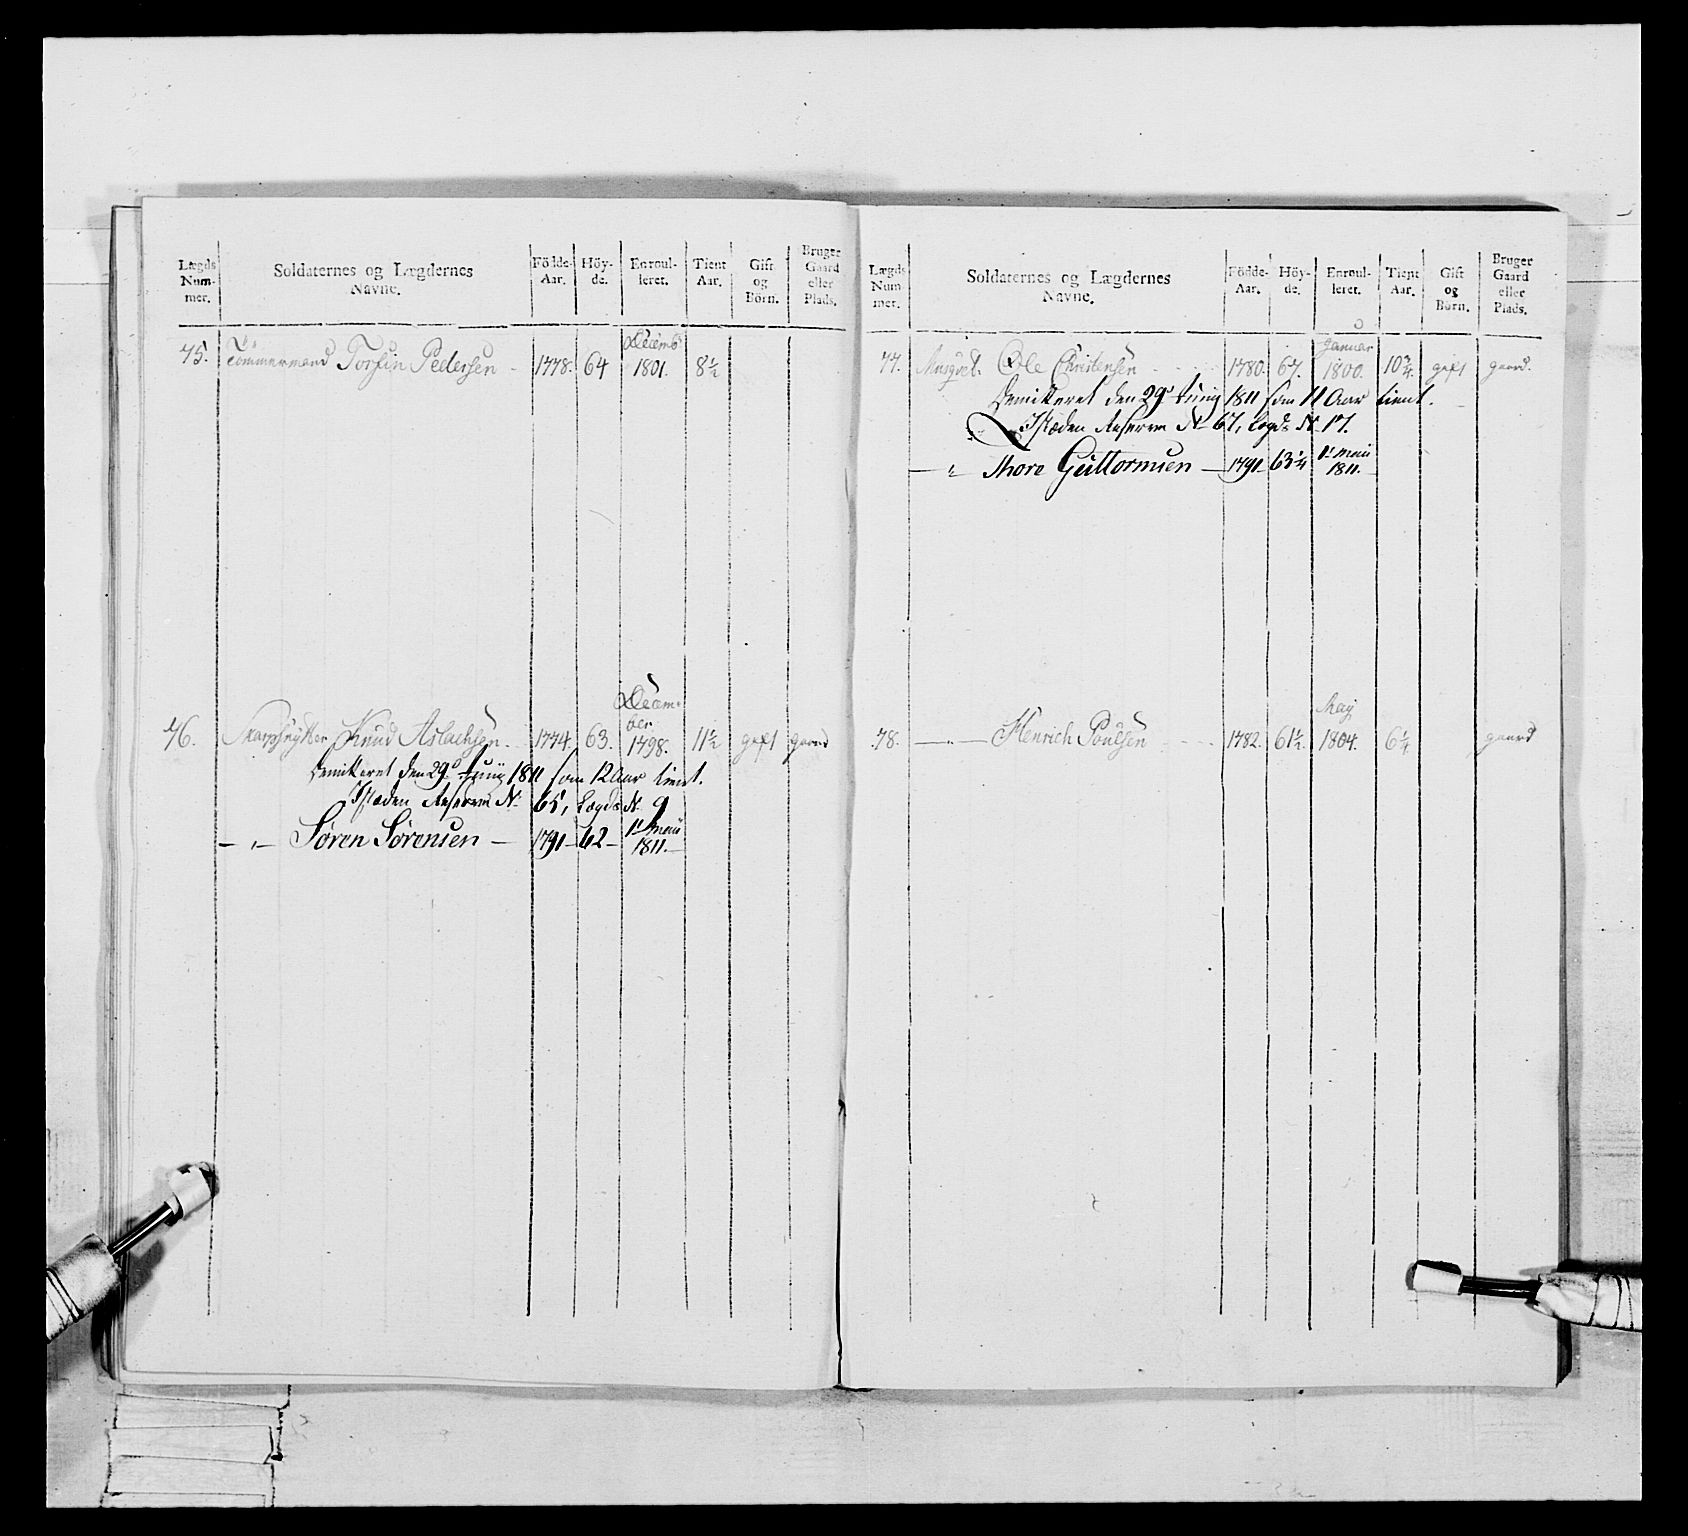 Lægds Num- mer. Soldaternes og Lægdernes Navne. Födde- Aar. Höy- de. Enroul- leret. Tient Aar. Gift og Börn. Bruger Gaard eller Plads.
75. Tömmermand Torfin Pedersen - 1778. 64 Decembr 1801. 8 1/2
76. Skarpskytter Knud Aslachsen 1774. 63. Decem- ber 1798. 11 1/2 gift gaard
Demitteret den 29de Junij 1811 som 12 Aar tient.
Isteden Reserve No 65, Lægds No 9
- " - Søren Sørensen - 1791 - 62 - 1te Maii 1811. -
Lægds Num- mer. Soldaternes og Lægdernes Navne. Födde- Aar. Höy- de. Enroul- leret. Tient Aar. Gift og Börn. Bruger Gaard eller Plads.
77. Musqvet. Ole Christensen 1780. 67. Januar 1800. 10 3/4 gift gaard.
Demitteret den 29de Junij 1811 som 11 Aar tient.
Isteden Reserve No 67, Lægds No 17.
- " - Thore Guttormsen - 1791 - 63 1/4 1te Maii 1811. -
78. - " - Henrich Poulsen 1782. 61 1/2. May 1804. 6 1/4 gaard